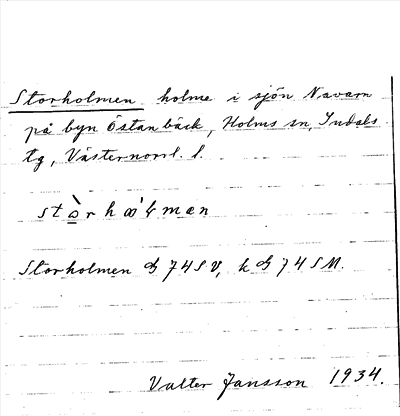 Storholmen holme i sjön Navarn
på byn Östanbäck, Holms sn, Indals
tg, Västernorrl. l.
Storholmen 74SV, k 74SM.
Valter Jansson 1934.